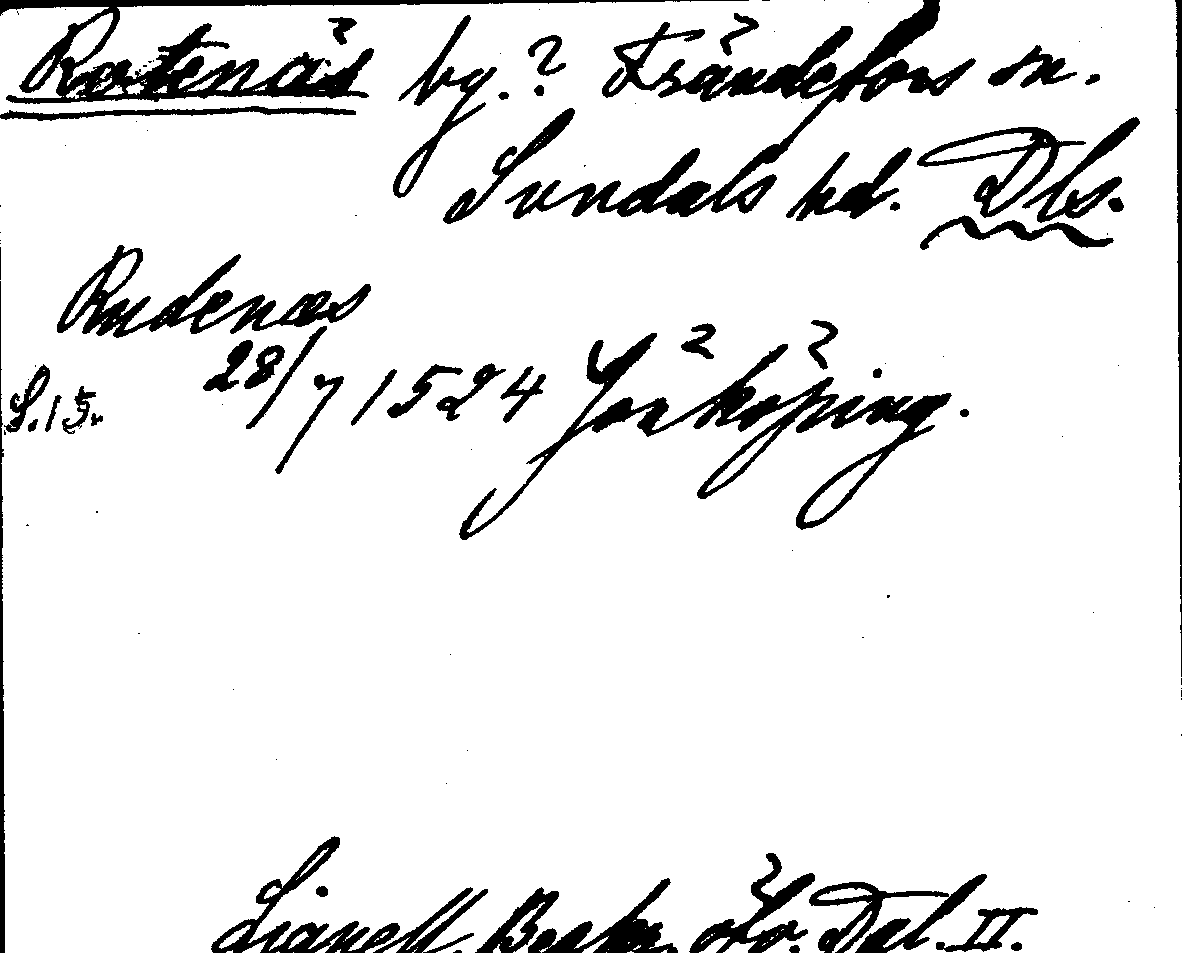 Rotenäs by.? Frändefors sn.
Sundals hd. Dls.
Rudenæs
S.15. 28/7 1524 Jönköping.
Lignell, Beskr. öfv. Dal. II.